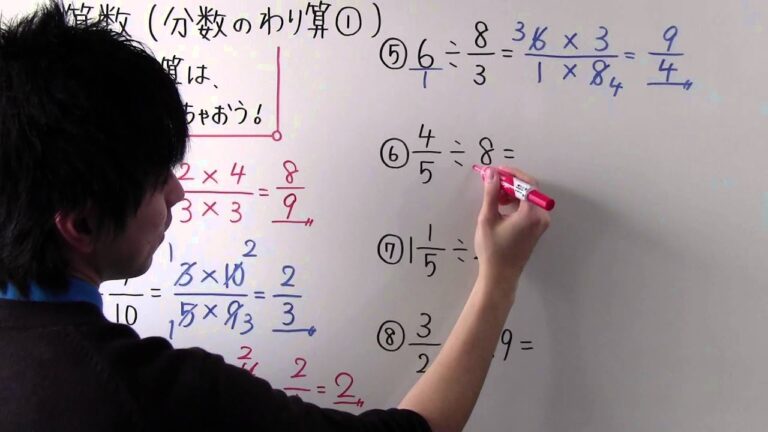 算数(分数のわり算①)
算は、
ちゃおう!
2 × 4 / 3 × 3 = 8/9
/10 = 3 × 10 / 5 × 9 = 2/3
2/ = 2
⑤ 6/1 ÷ 8/3 = 6 × 3 / 1 × 8 = 9/4
⑥ 4/5 ÷ 8 =
⑦ 1 1/5 ÷
⑧ 3/2 .9 =